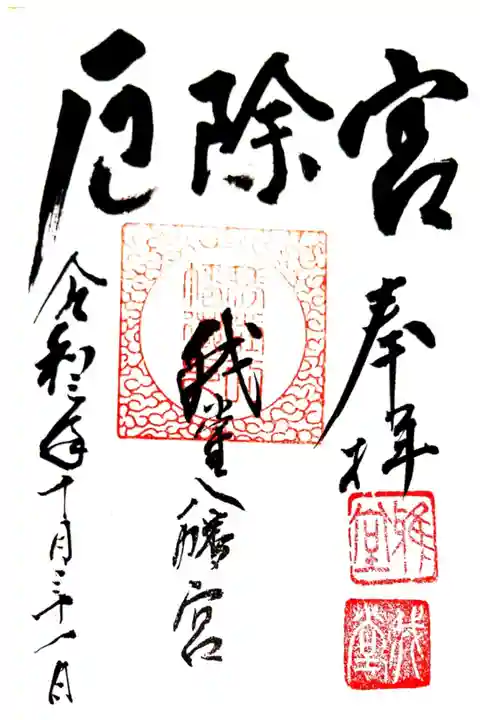 厄除宮
奉拝
我堂八幡宮
令和三年十月三十一日